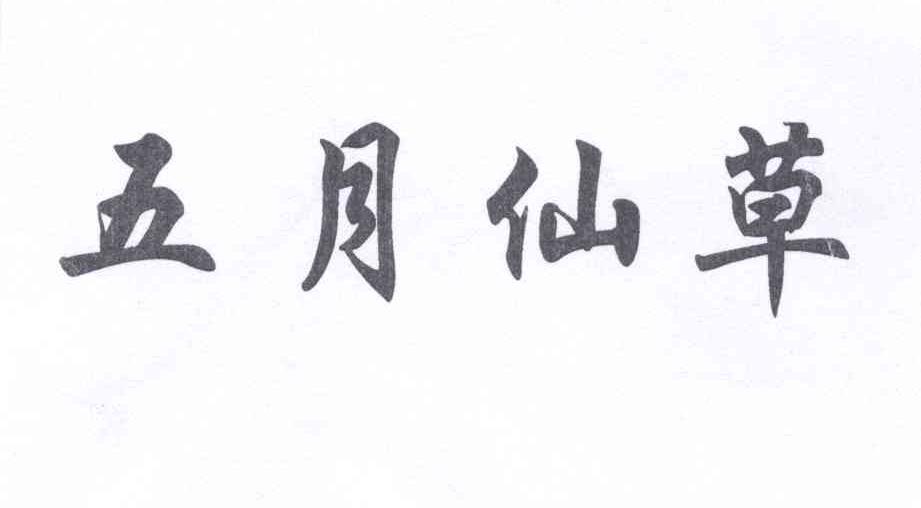 五月仙草